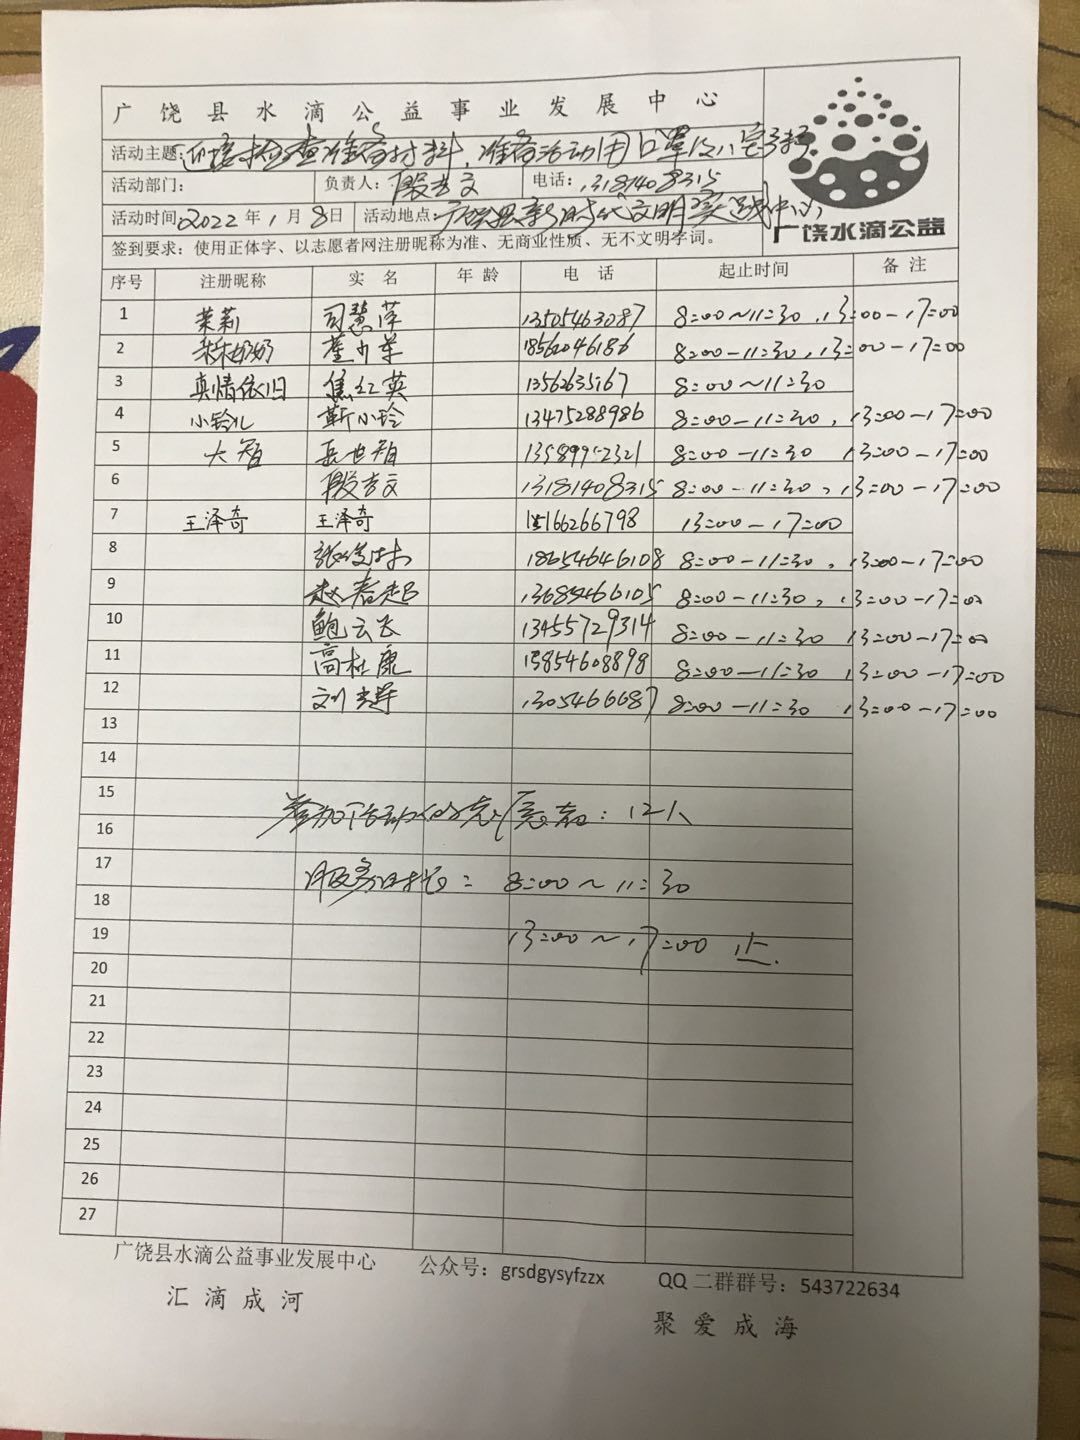 广饶县水滴公益事业发展中心
活动主题：迎接检查准备材料，准备活动用口罩及
活动部门： 负责人：殷吉文 电话：13181408315
活动时间 2022年1月8日 活动地点：广饶县新时代文明实践中心
签到要求：使用正体字、以志愿者网注册昵称为准、无商业性质、无不文明字词。
广饶水滴公益
序号 注册昵称 实名 年龄 电话 起止时间 备注
1 茉莉 司慧萍 13505463087 8:00～11:30，13:00－17:00
2 奶奶 董 18562046186 8:00－11:30，13:00－17:00
3 真情依旧 焦红英 8:00～11:30
4 小铃儿 靳小玲 13475288986 8:00－11:30，13:00－17:00
5 大智 岳世智 13589952321 8:00－11:30 13:00－17:00
6 殷吉文 13181408315 8:00－11:30，13:00－17:00
7 王泽奇 王泽奇 15166266798 13:00－17:00
8 张 18654646108 8:00－11:30，13:00－17:00
9 赵春超 13685466105 8:00－11:30，13:00－17:00
10 鲍云飞 13455729314 8:00－11:30 13:00－17:00
11 高杜康 15854608898 8:00－11:30 13:00－17:00
12 刘 13054666687 8:00－11:30 13:00－17:00
13
14
15
参加活动的志愿者：12人
16
17
服务时间：8:00～11:30
18
19 13:00～17:00止.
20
21
22
23
24
25
26
27
广饶县水滴公益事业发展中心 公众号：grsdgysyfzzx QQ二群群号：543722634
汇滴成河 聚爱成海